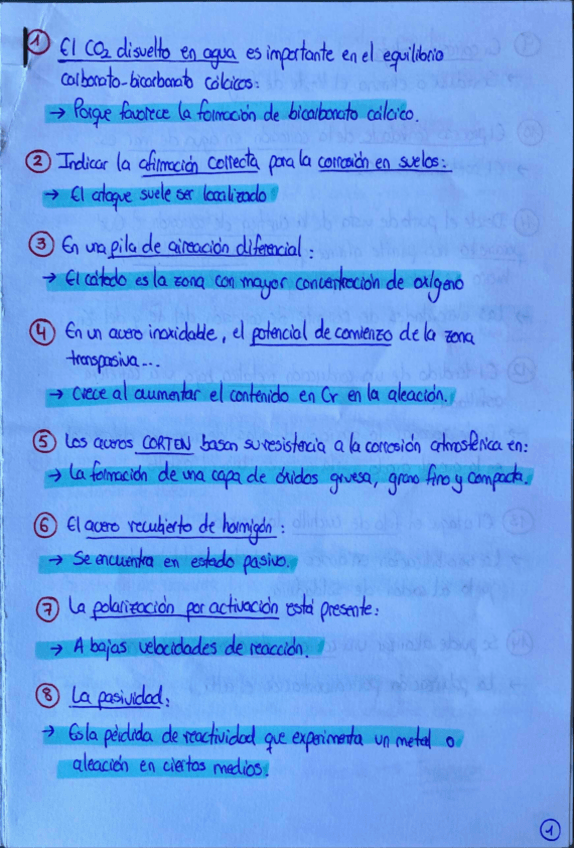 1 El CO2 disuelto en agua es importante en el equilibrio
carbonato-bicarbonato cálcicos:
→ Porque favorece la formación de bicarbonato cálcico.
2 Indicar la afirmación correcta para la corrosión en suelos:
→ El ataque suele ser localizado
3 En una pila de aireación diferencial:
→ El cátodo es la zona con mayor concentración de oxígeno
4 En un acero inoxidable, el potencial de comienzo de la zona
transpasiva...
→ Crece al aumentar el contenido en Cr en la aleación.
5 Los aceros CORTEN basan su resistencia a la corrosión atmosférica en:
→ La formación de una capa de óxidos gruesa, grano fino y compacta.
6 El acero recubierto de hormigón:
→ Se encuentra en estado pasivo.
7 La polarización por activación está presente:
→ A bajas velocidades de reacción.
8 La pasividad:
→ Es la pérdida de reactividad que experimenta un metal o
aleación en ciertos medios.
1